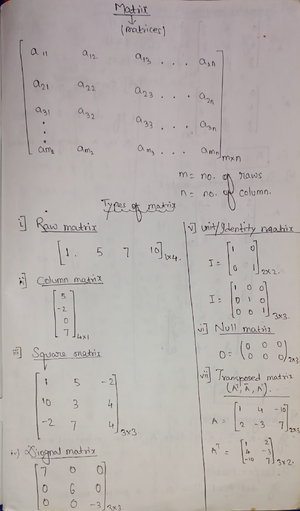 Matrix
↓
(matrices)
[ a11 a12 a13 . . . a1n
a21 a22 a23 . . . a2n
a31 a32 a33 . . . a3n
:
am1 am2 am3 . . . amn ] m×n
m = no. of raws
n = no. of column.
Types of matrix
i] Raw matrix
[1. 5 7 10] 1×4
ii] Column matrix
[ 5
-2
0
7 ] 4×1
iii] Square matrix
[ 1 5 -2
10 3 4
-2 7 4 ] 3×3
iv) Diagonal matrix
[ 7 0 0
0 6 0
0 0 -3 ] 3×3
v] Unit/Identity matrix
I = [ 1 0
0 1 ] 2×2
I = [ 1 0 0
0 1 0
0 0 1 ] 3×3
vi] Null matrix
O = ( 0 0 0
0 0 0 ) 2×3
vii] Transposed matrix
A = [ 1 4 -10
2 -3 7 ] 2×3
Aᵀ = [ 1 2
4 -3
-10 7 ] 3×2